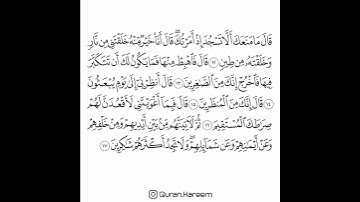 قَالَ مَا مَنَعَكَ أَلَّا تَسْجُدَ إِذْ أَمَرْتُكَ ۖ قَالَ أَنَا۠ خَيْرٌ مِّنْهُ خَلَقْتَنِى مِن نَّارٍ
وَخَلَقْتَهُۥ مِن طِينٍ ١٢ قَالَ فَٱهْبِطْ مِنْهَا فَمَا يَكُونُ لَكَ أَن تَتَكَبَّرَ
فِيهَا فَٱخْرُجْ إِنَّكَ مِنَ ٱلصَّٰغِرِينَ ١٣ قَالَ أَنظِرْنِىٓ إِلَىٰ يَوْمِ يُبْعَثُونَ
١٤ قَالَ إِنَّكَ مِنَ ٱلْمُنظَرِينَ ١٥ قَالَ فَبِمَآ أَغْوَيْتَنِى لَأَقْعُدَنَّ لَهُمْ
صِرَٰطَكَ ٱلْمُسْتَقِيمَ ١٦ ثُمَّ لَءَاتِيَنَّهُم مِّنۢ بَيْنِ أَيْدِيهِمْ وَمِنْ خَلْفِهِمْ
وَعَنْ أَيْمَٰنِهِمْ وَعَن شَمَآئِلِهِمْ ۖ وَلَا تَجِدُ أَكْثَرَهُمْ شَٰكِرِينَ ١٧
Quran.Kareem